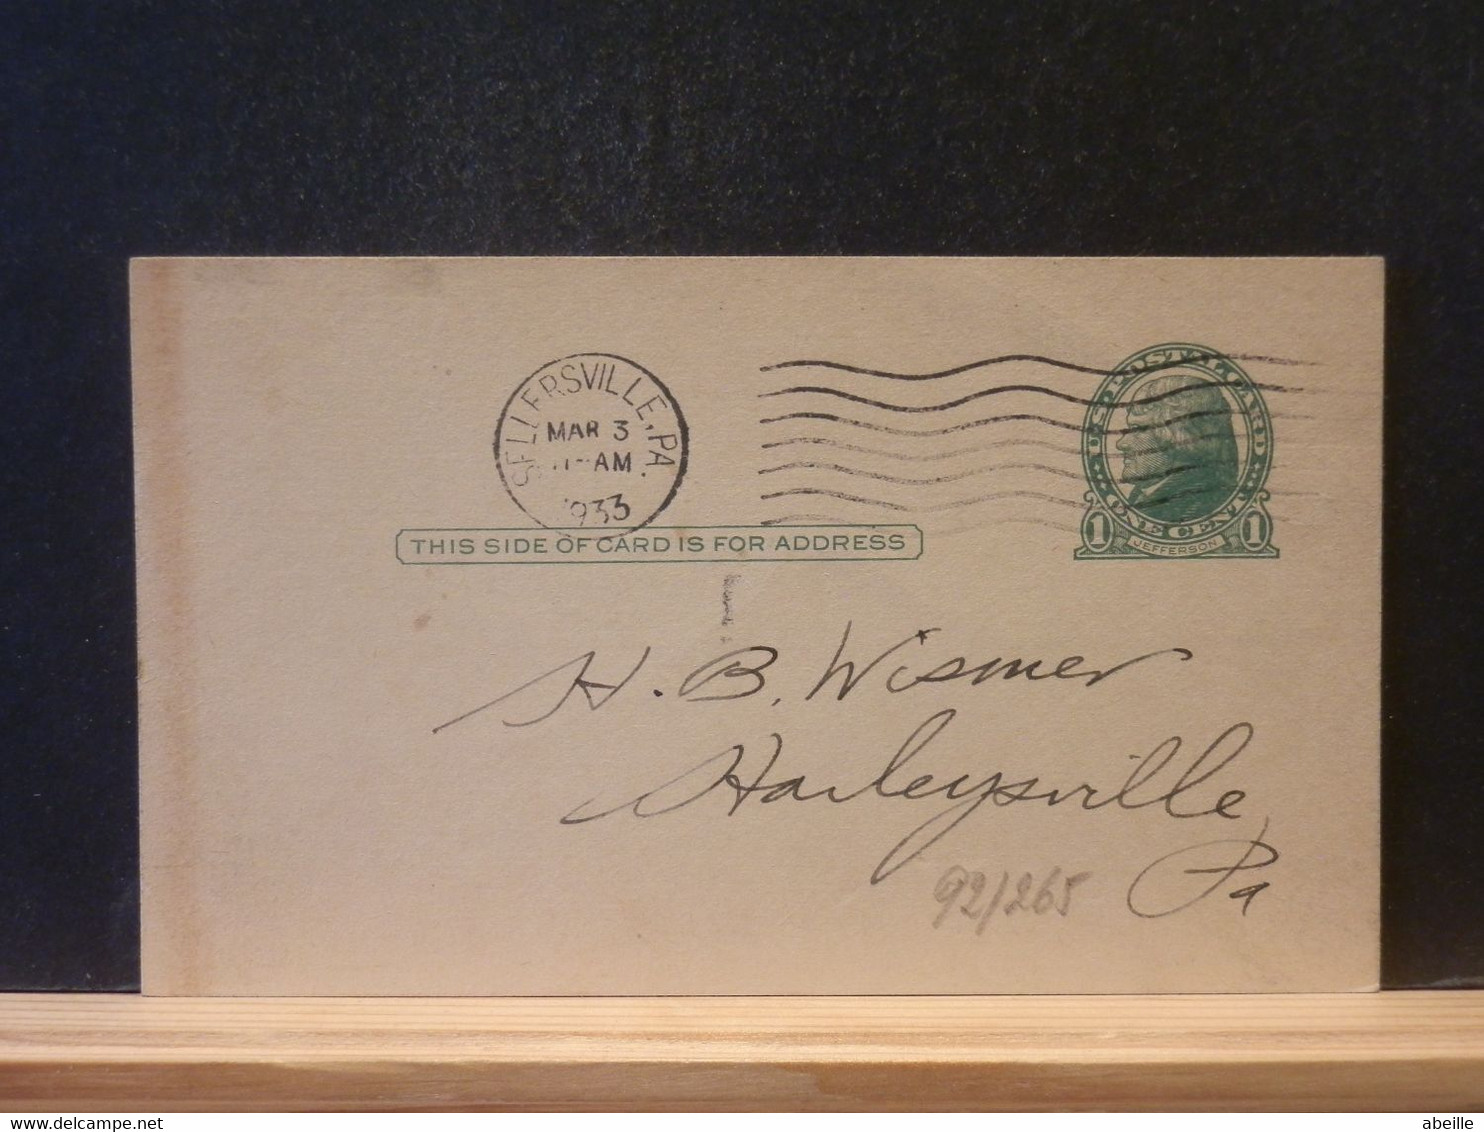 SELLERSVILLE, PA.
MAR 3
11-AM
1933
U·S·POSTAL CARD
ONE CENT
1 JEFFERSON 1
THIS SIDE OF CARD IS FOR ADDRESS
H. B. Wismer
Harleysville,
Pa
92/265
abeille